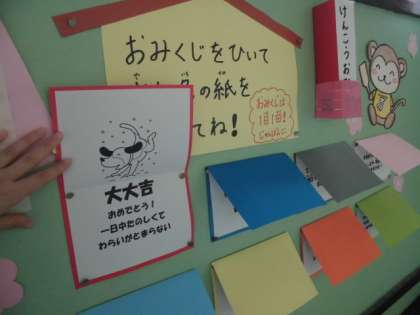 おみくじをひいて
の紙を
てね!
おみくじは
1日1回!
けんこうお
大大吉
おめでとう!
一日中たのしくて
わらいがとまらない